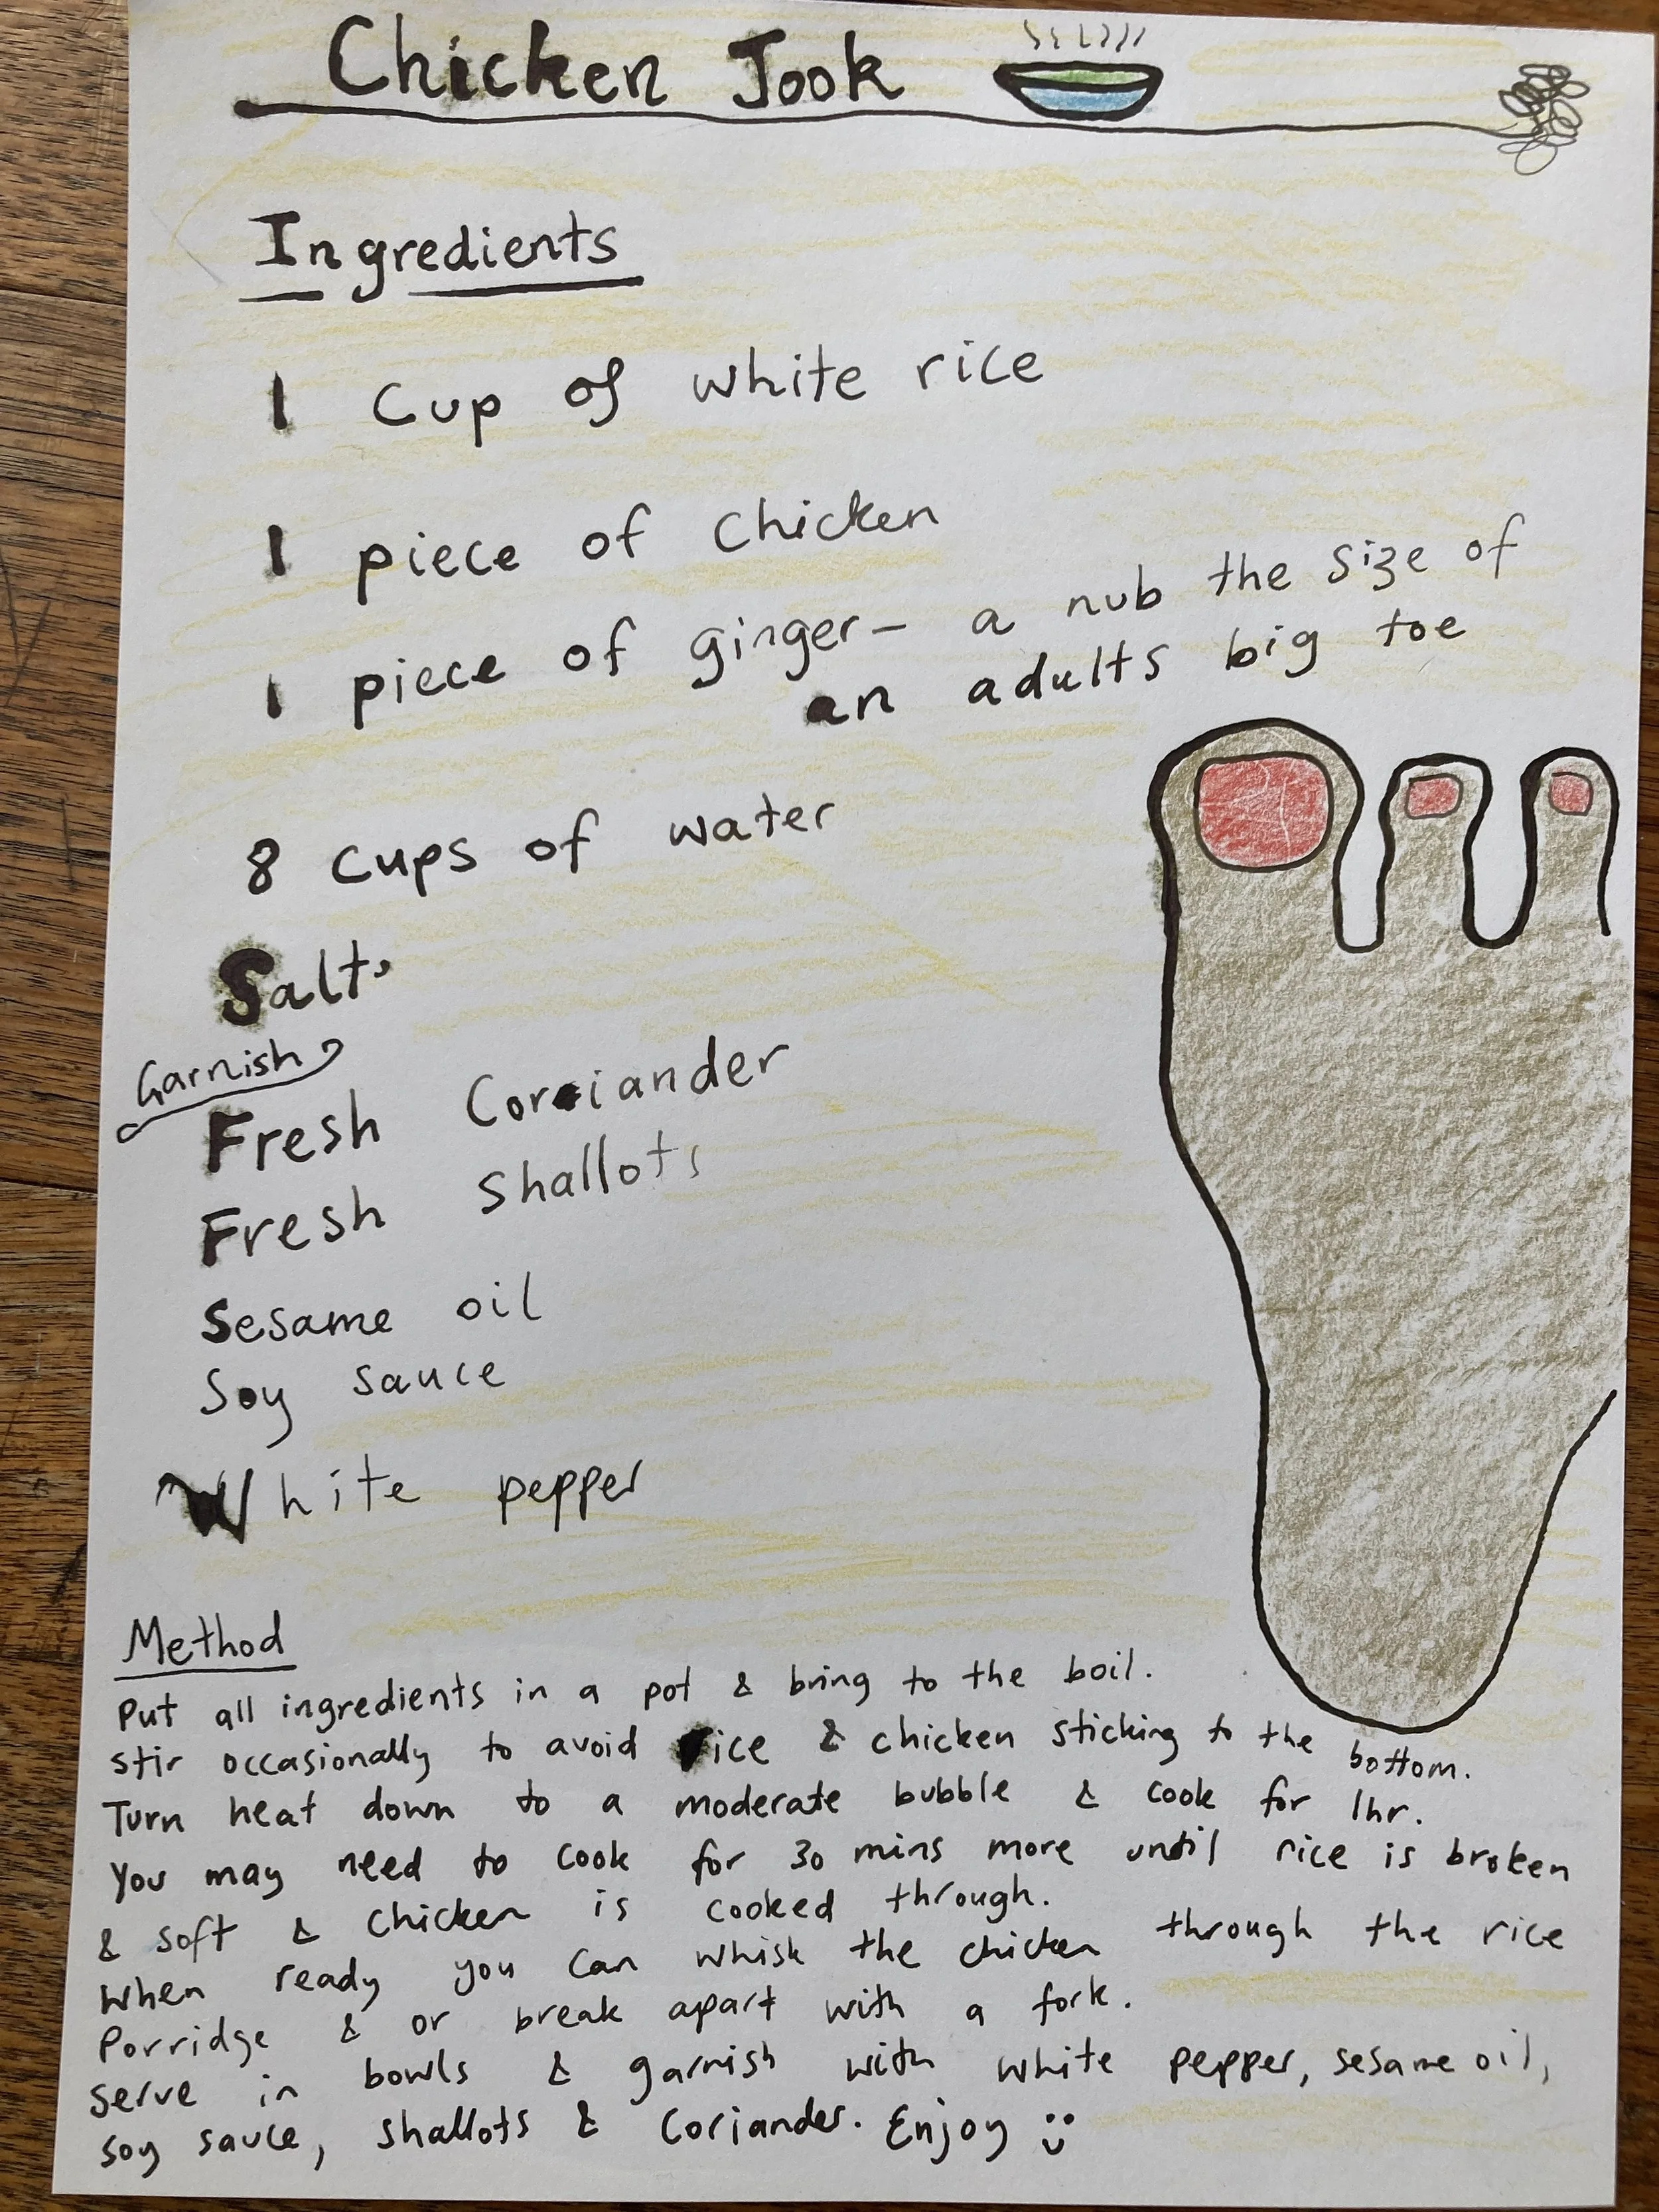 Chicken Jook
Ingredients
1 Cup of white rice
1 piece of chicken
1 piece of ginger – a nub the size of
an adults big toe
8 cups of water
Salt
Garnish
Fresh Coriander
Fresh Shallots
Sesame oil
Soy sauce
White pepper
Method
Put all ingredients in a pot & bring to the boil.
stir occasionally to avoid rice & chicken sticking to the bottom.
Turn heat down to a moderate bubble & cook for 1hr.
You may need to cook for 30 mins more until rice is broken
& soft & chicken is cooked through.
When ready you can whisk the chicken through the rice
Porridge & or break apart with a fork.
Serve in bowls & garnish with white pepper, sesame oil,
soy sauce, shallots & Coriander. Enjoy